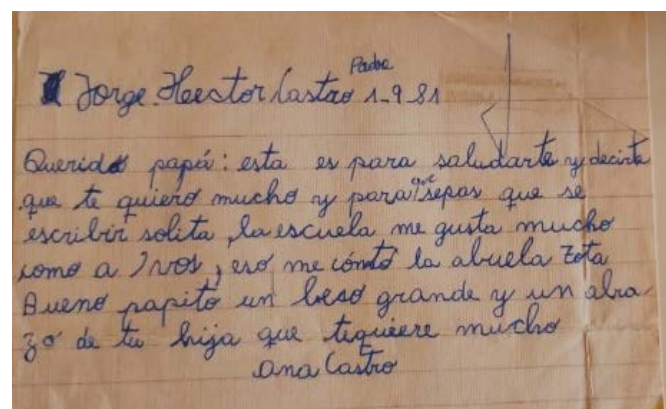 Padre
Jorge. Heector Castro 1-9-81
Querido papá: esta es para saludarte y decirte
que te quiero mucho y para que sepas que se
escribir solita, la escuela me gusta mucho
como a vos, eso me contó la abuela Tota
Bueno papito un beso grande y un abra
zo de tu hija que tequiere mucho
Ana Castro